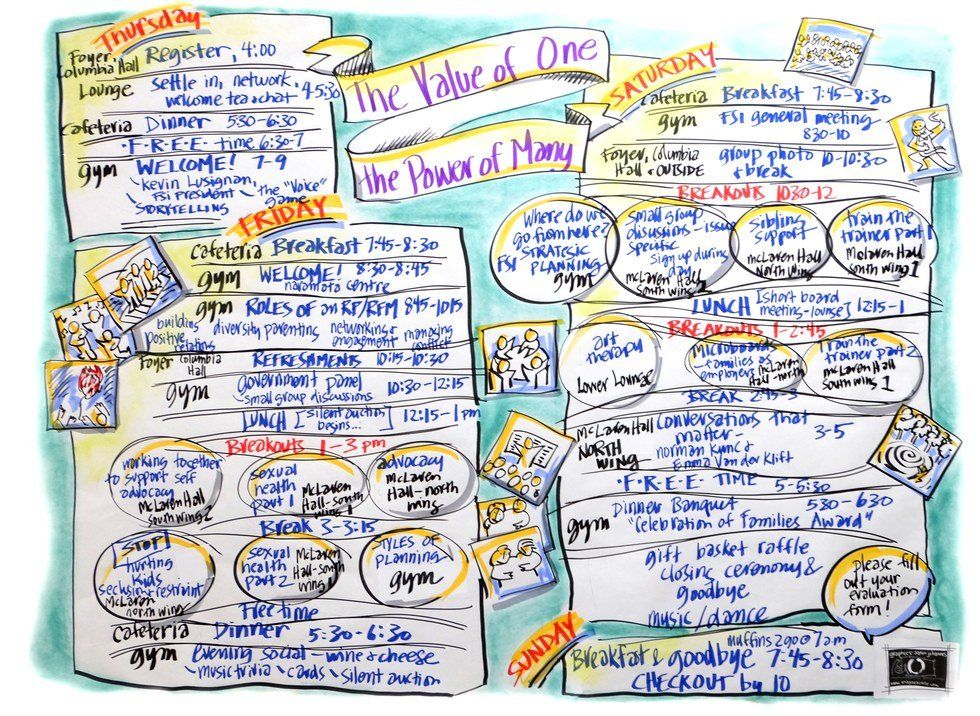 The Value of One
the Power of Many
THURSDAY
Foyer, Columbia Hall Register, 4:00
Lounge settle in, network welcome tea & chat 4-5:30
cafeteria Dinner 5:30-6:30
• F•R•E•E• time 6:30-7
gym WELCOME! 7-9
Kevin Lusignan, FSI President
STORYTELLING
the "Voice" game
FRIDAY
cafeteria Breakfast 7:45-8:30
gym WELCOME! 8:30-8:45
naramata centre
gym ROLES OF AN RP/RFM 8:45-10:15
building positive relating
diversity parenting
networking & engagement
managing conflict
Foyer Columbia Hall REFRESHMENTS 10:15-10:30
gym government panel 10:30-12:15
small group discussions
LUNCH [silent auction begins...] 12:15-1pm
Breakouts 1-3 pm
working together to support self advocacy
McLaren Hall South wing 2
sexual health part 1
McLaren Hall-south wing 1
advocacy
McLaren Hall-north wing
Break 3-3:15
STOP!
hurting kids
seclusion & restraint
McLaren north wing
sexual health part 2
McLaren Hall-south wing 1
STYLES OF PLANNING
gym
Free time
cafeteria Dinner 5:30-6:30
gym evening social - wine & cheese
music trivia cards silent auction
SATURDAY
cafeteria Breakfast 7:45-8:30
gym FSI general meeting
8:30-10
Foyer, Columbia Hall & OUTSIDE group photo & break 10-10:30
BREAKOUTS 10:30-12
Where do we go from here?
FSI STRATEGIC PLANNING
gym
small group discussions - issue specific
sign up during day
McLaren Hall South wing 2
sibling support
McLaren Hall North Wing
train the trainer part 1
McLaren Hall South wing 1
LUNCH [short board meeting-lounge] 12:15-1
BREAKOUTS 1-2:45
art therapy
Lower Lounge
Microboards
- families as employers
McLaren Hall-north
Train the trainer part 2
McLaren Hall South wing 1
BREAK 2:45-3
McLaren Hall NORTH WING
Conversations that matter - 3-5
norman Kunc & Emma Van der Klift
• F•R•E•E• TIME 5-5:30
Dinner Banquet 5:30-6:30
gym "Celebration of Families Award"
gift basket raffle
closing ceremony & goodbye
music/dance
please fill out your evaluation form!
SUNDAY
muffins 2 go @ 7am
Breakfast & goodbye 7:45-8:30
CHECKOUT by 10